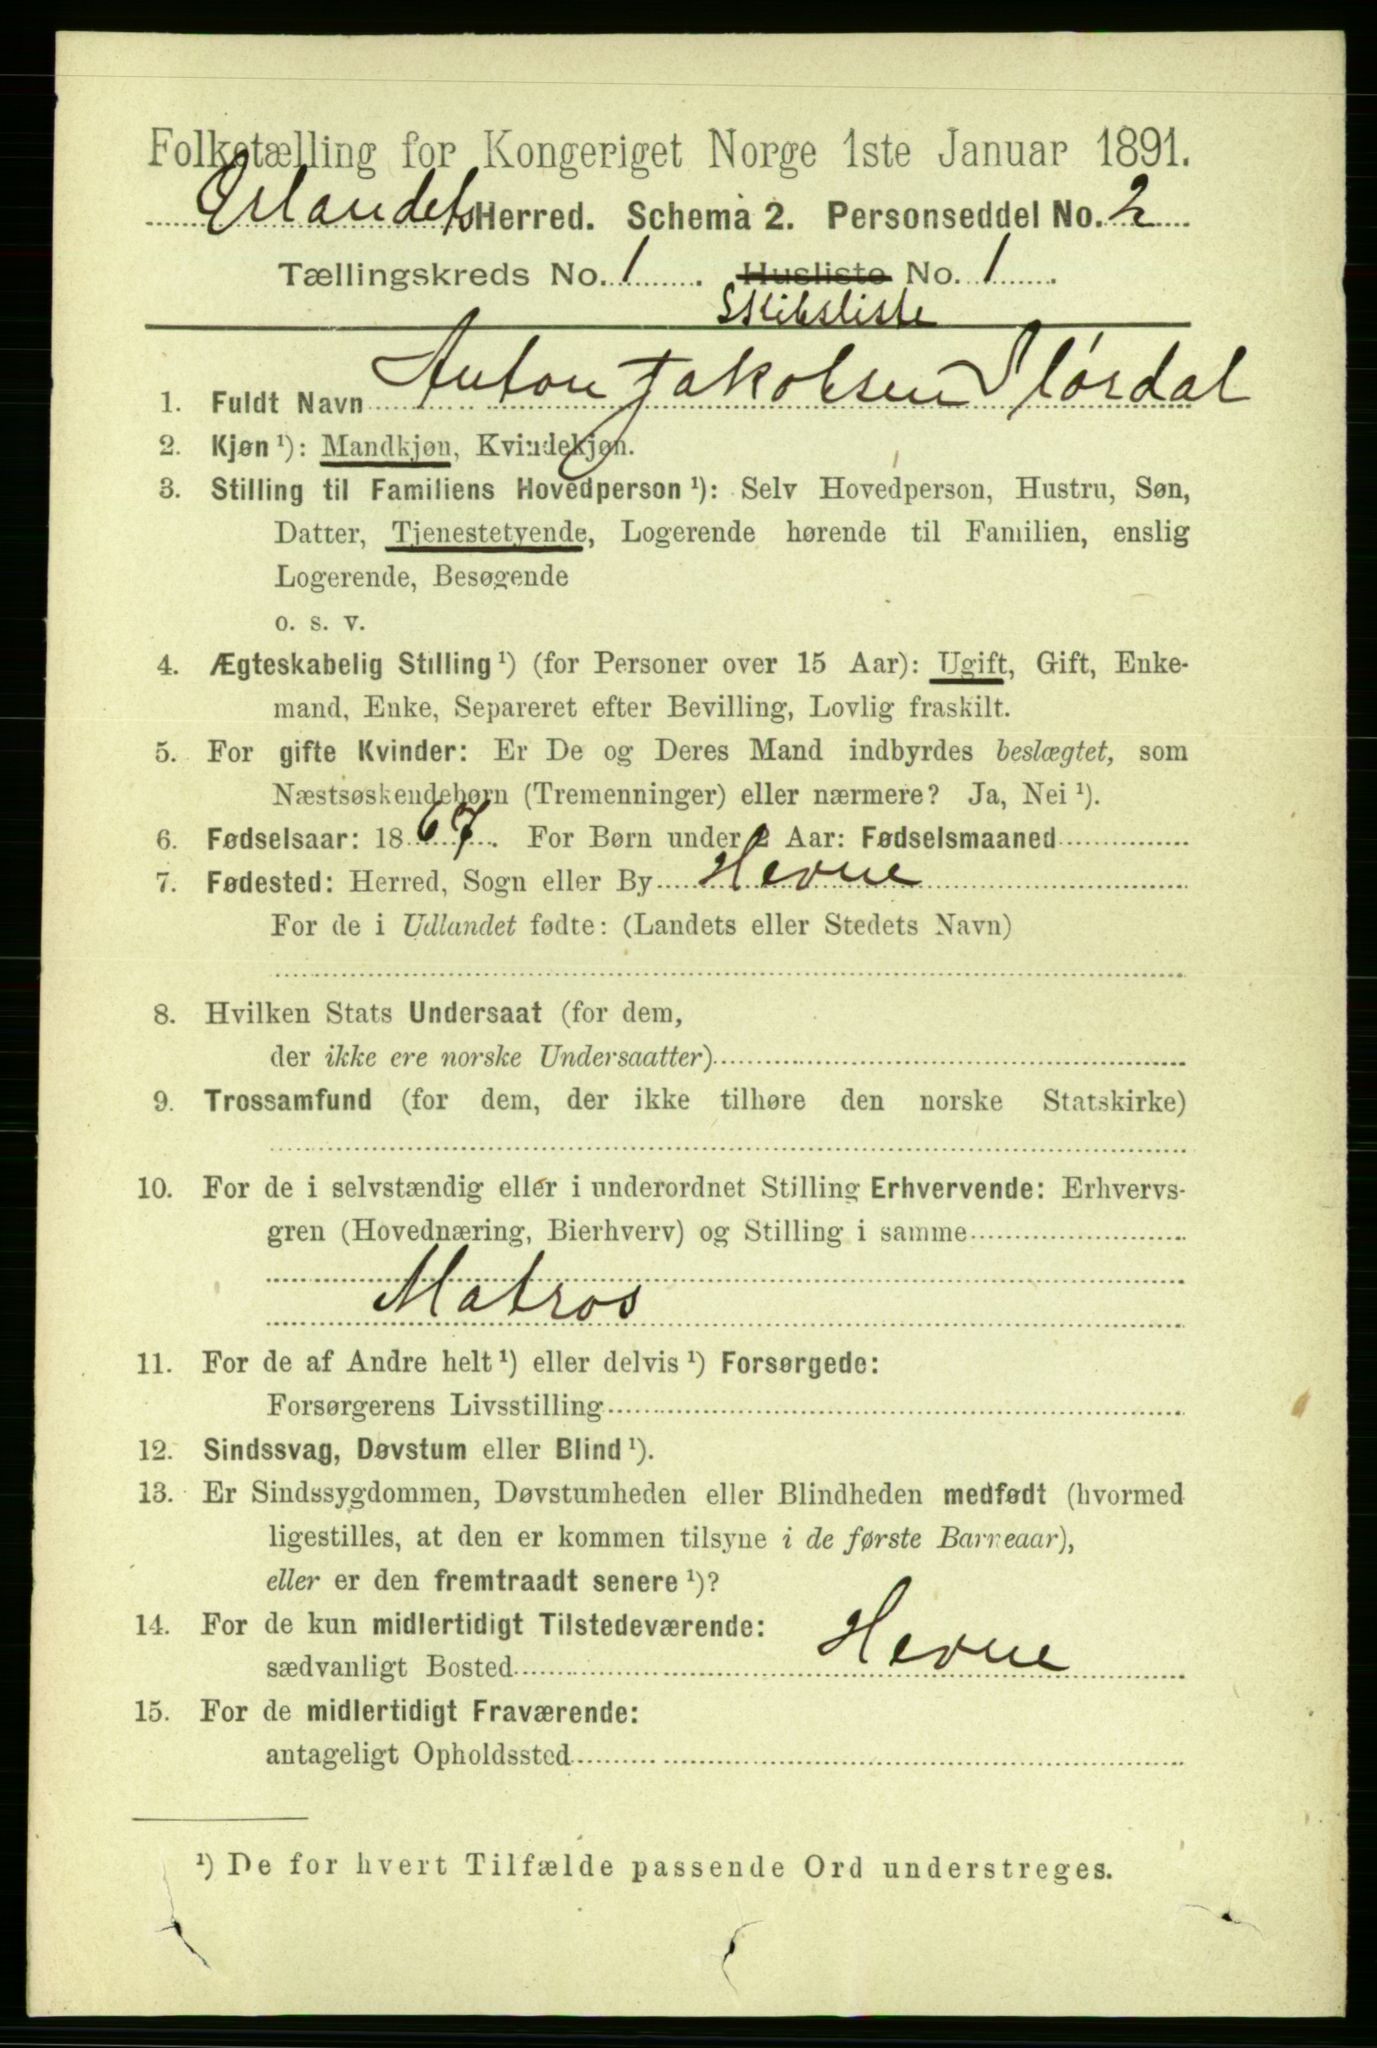 Folketælling for Kongeriget Norge 1ste Januar 1891.
Ørlandets Herred. Schema 2. Personseddel No. 2
Tællingskreds No. 1. Husliste No. 1.
Skibsliste
1. Fuldt Navn Anton Jakobsen
2. Kjøn ¹): Mandkjøn, Kvindekjøn.
3. Stilling til Familiens Hovedperson ¹): Selv Hovedperson, Hustru, Søn,
Datter, Tjenestetyende, Logerende hørende til Familien, enslig
Logerende, Besøgende
o. s. v.
4. Ægteskabelig Stilling ¹) (for Personer over 15 Aar): Ugift, Gift, Enke-
mand, Enke, Separeret efter Bevilling, Lovlig fraskilt.
5. For gifte Kvinder: Er De og Deres Mand indbyrdes beslægtet, som
Næstsøskendebørn (Tremenninger) eller nærmere? Ja, Nei ¹).
6. Fødselsaar: 1867. For Børn under 2 Aar: Fødselsmaaned
7. Fødested: Herred, Sogn eller By Hevne
For de i Udlandet fødte: (Landets eller Stedets Navn)
8. Hvilken Stats Undersaat (for dem,
der ikke ere norske Undersaatter)
9. Trossamfund (for dem, der ikke tilhøre den norske Statskirke)
10. For de i selvstændig eller i underordnet Stilling Erhvervende: Erhvervs-
gren (Hovednæring, Bierhverv) og Stilling i samme
Matros
11. For de af Andre helt ¹) eller delvis ¹) Forsørgede:
Forsørgerens Livsstilling
12. Sindssvag, Døvstum eller Blind ¹).
13. Er Sindssygdommen, Døvstumheden eller Blindheden medfødt (hvormed
ligestilles, at den er kommen tilsyne i de første Barneaar),
eller er den fremtraadt senere ¹)?
14. For de kun midlertidigt Tilstedeværende:
sædvanligt Bosted Hevne
15. For de midlertidigt Fraværende:
antageligt Opholdssted
¹) De for hvert Tilfælde passende Ord understreges.